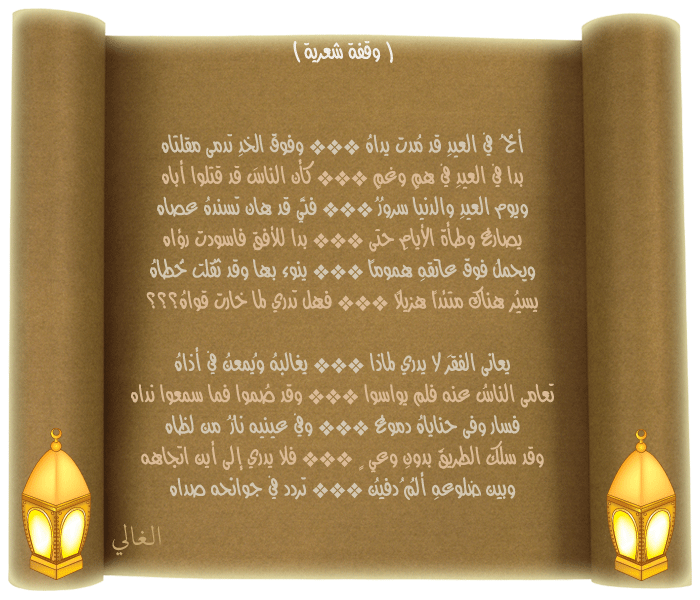 ( وقفة شعرية )
أخٌ في العيدِ قد مُدت يداهُ ❖❖❖ وفوق الخدِ تدمى مقلتاه
بدا في العيدِ في همٍ وغمٍ ❖❖❖ كأن الناسَ قد قتلوا أباه
ويوم العيدِ والدنيا سرورٌ ❖❖❖ فتًى قد هان تسندهُ عصاه
يصارعُ وطأة الأيامِ حتى ❖❖❖ بدا للأفقِ فاسودت رؤاه
ويحملُ فوق عاتقهِ همومًا ❖❖❖ ينوء بها وقد ثقلت خطاهُ
يسيُر هناك متئدًا هزيلًا ❖❖❖ فهل تدري لما خارت قواهُ؟؟؟
يعانى الفقرَ لا يدري لماذا ❖❖❖ يغالبهُ ويُمعنُ في أذاهُ
تعامى الناسُ عنه فلم يواسوا ❖❖❖ وقد صُموا فما سمعوا نداه
فسار وفى حناياهُ دموعٌ ❖❖❖ وفي عينيه نارٌ من لظاه
وقد سلك الطريق بدونِ وعيٍ ❖❖❖ فلا يدري إلى أين اتجاهه
وبين ضلوعهِ ألمٌ دفينٌ ❖❖❖ تردد في جوانحه صداه
الغالي